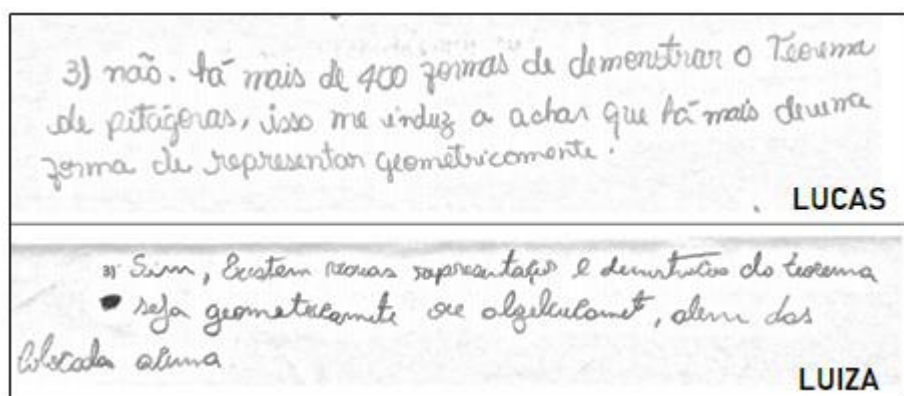 3) não. há mais de 400 formas de demonstrar o Teorema
de pitágoras, isso me induz a achar que há mais de uma
forma de representar geometricamente.
LUCAS
3) Sim, Existem representações e do teorema
seja geometricamente ou algebricamente, alem das
colocadas acima.
LUIZA